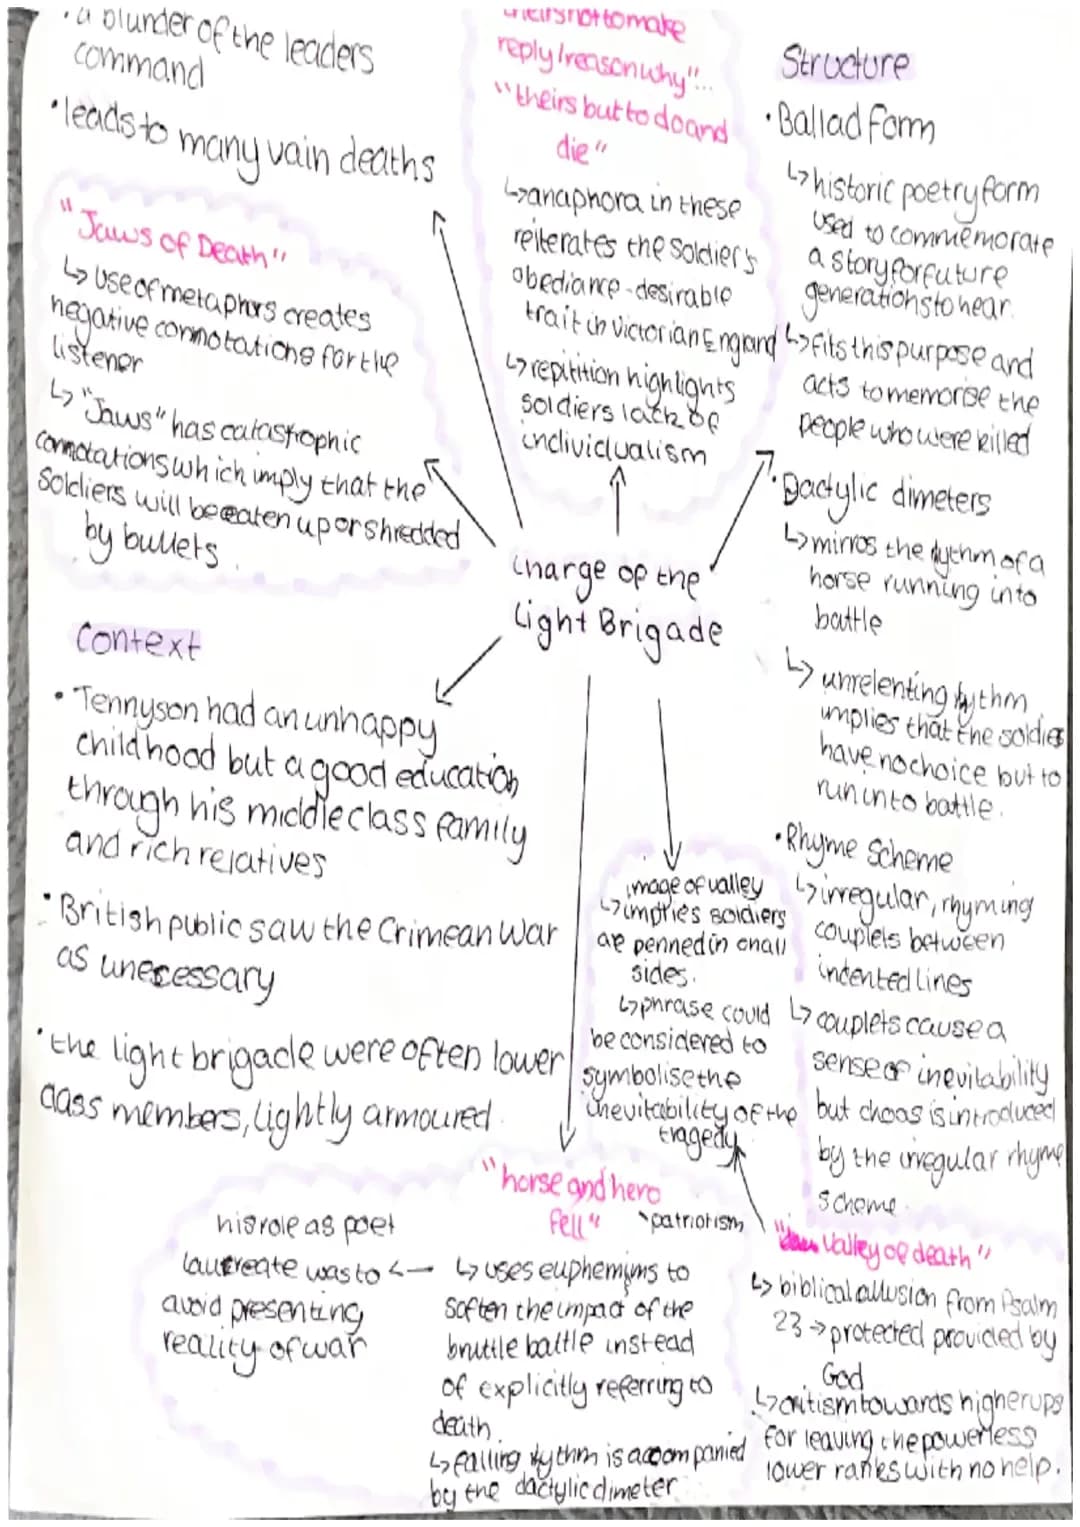 • a blunder of the leaders
command
• leads to many vain deaths
"Jaws of Death"
↳ use of metaphors creates
negative connotations for the
listener
↳ "Jaws" has catastrophic
connotations which imply that the
Soldiers will be eaten up or shredded
by bullets.
theirs not to make
reply/reason why"...
"theirs but to do and
die"
↳ anaphora in these
reiterates the soldier's
obediance - desirable
trait in Victorian England
↳ repitition highlights
soldiers lack of
individualism
Structure
• Ballad form
↳ historic poetry form
used to commemorate
a story for future
generations to hear.
↳ fits this purpose and
acts to memorise the
people who were killed
• Dactylic dimeters
↳ mirros the rythm of a
horse running into
battle
↳ unrelenting rythm
implies that the soldies
have no choice but to
run into battle.
• Rhyme Scheme
↳ irregular, rhyming
couplets between
indented lines
↳ couplets cause a
sense of inevitability
but choas is introduced
by the irregular rhyme
scheme.
Charge of the
Light Brigade
Context
• Tennyson had an unhappy
childhood but a good education
through his middle class family
and rich relatives
• British public saw the Crimean War
as unecessary
• the light brigade were often lower
class members, lightly armoured.
image of valley
↳ implies soldiers
are penned in on all
sides.
↳ phrase could
be considered to
symbolise the
inevitability of the
tragedy.
"horse and hero
fell"
patriotism
↳ uses euphemisms to
soften the impact of the
bruttle battle instead
of explicitly referring to
death.
↳ falling rythm is accompanied
by the dactylic dimeter.
his role as poet
laureate was to
avoid presenting
reality of war
"valley of death"
↳ biblical allusion from Psalm
23 → protected provided by
God
↳ critism towards higher ups
for leaving the powerless
lower ranks with no help.